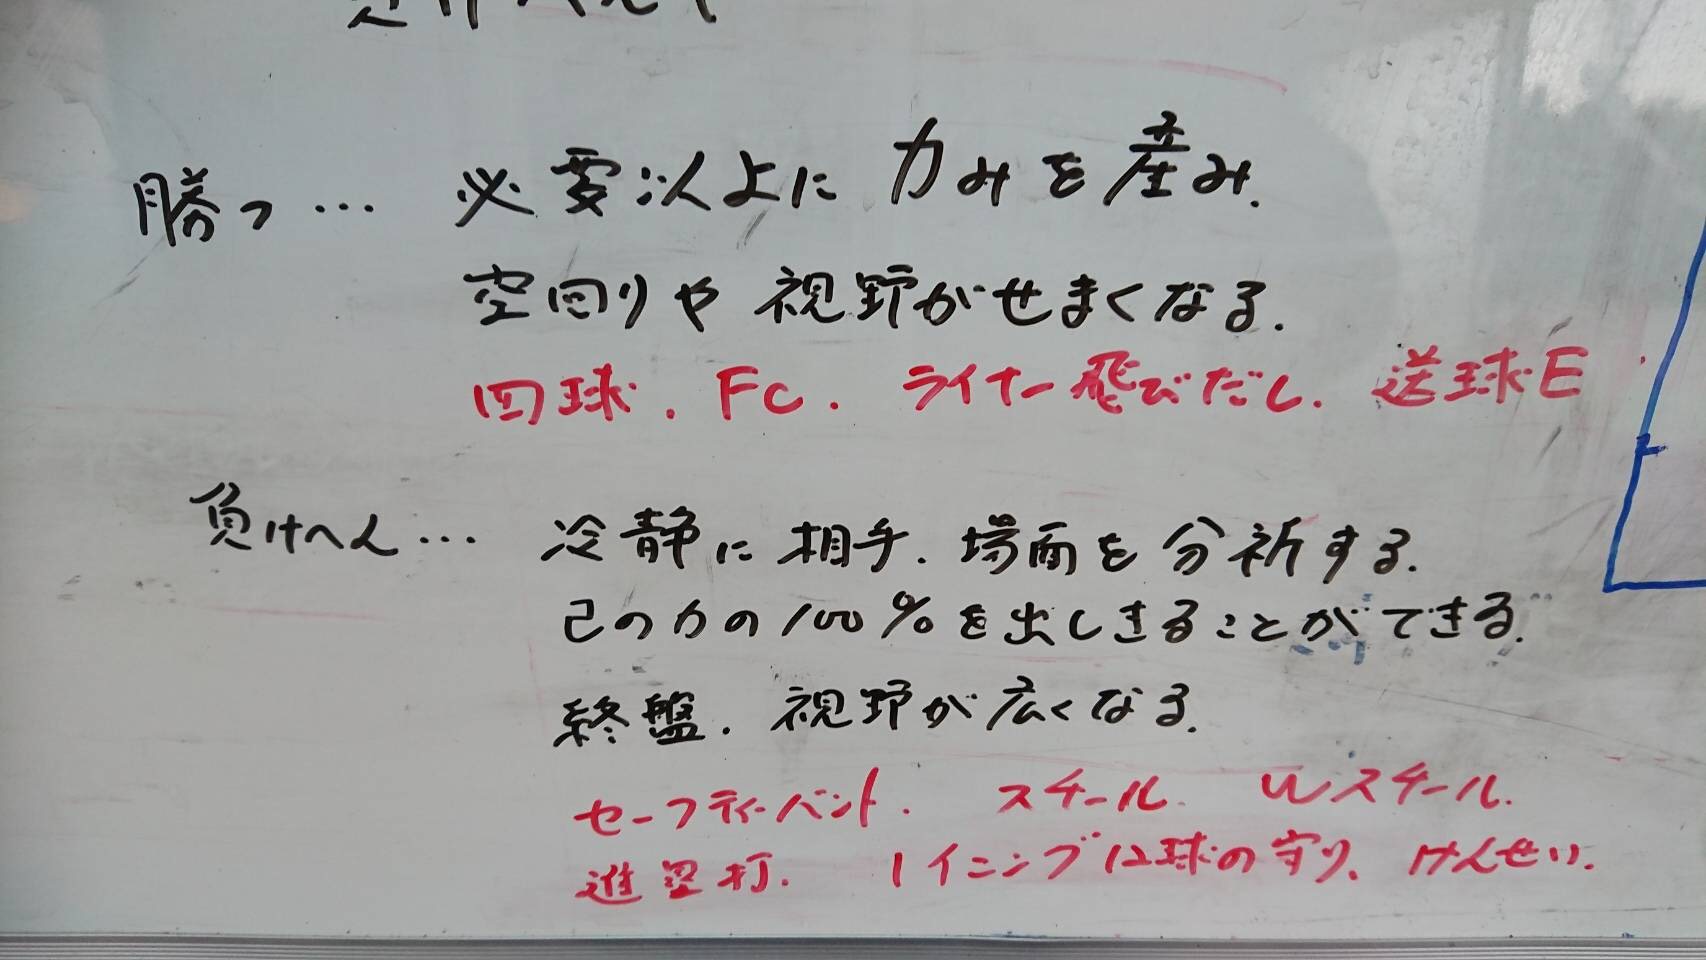 負けへんで
勝つ… 必要以上に 力みを産み.
空回りや 視野がせまくなる.
四球. FC. ライナー飛びだし. 送球E
負けへん… 冷静に相手.場面を分析する.
己の力の100%を出しきることができる.
終盤. 視野が広くなる.
セーフティーバント. スチール. Wスチール.
進塁打. 1イニング12球の守り、けんせい.